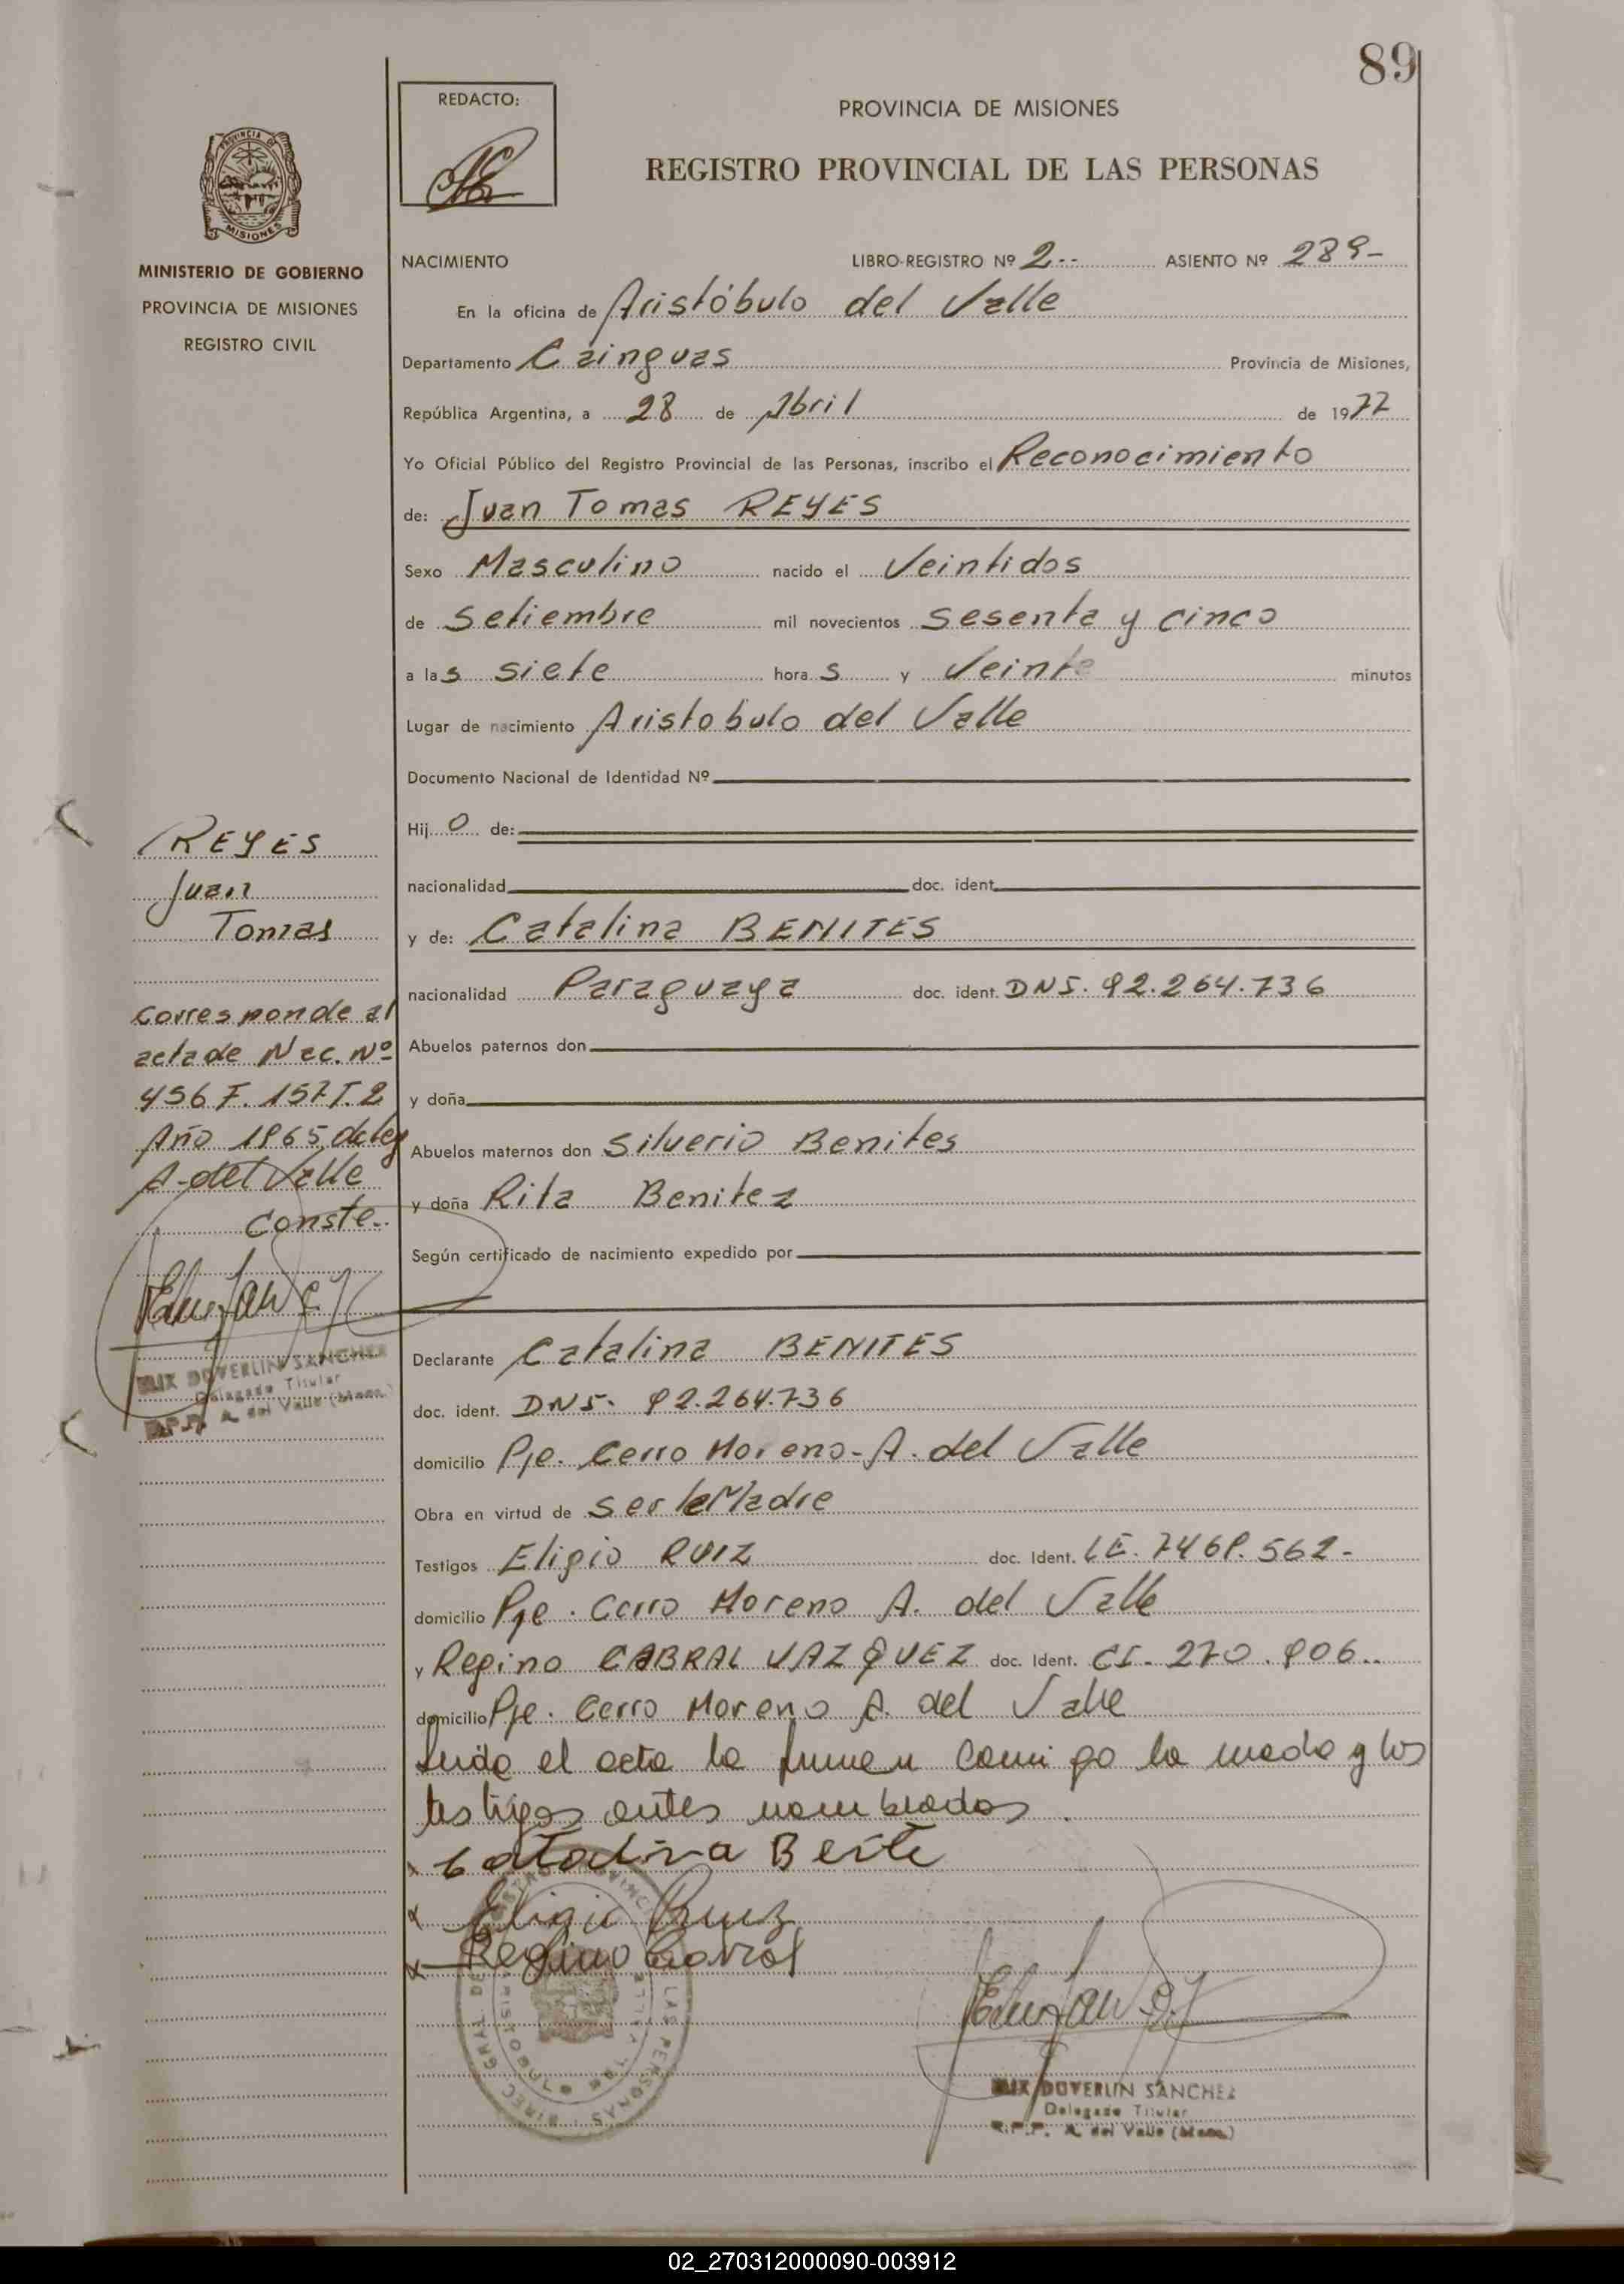 89
REDACTO:
PROVINCIA DE MISIONES
REGISTRO PROVINCIAL DE LAS PERSONAS
PROVINCIA DE
MISIONES
MINISTERIO DE GOBIERNO
PROVINCIA DE MISIONES
REGISTRO CIVIL
NACIMIENTO LIBRO-REGISTRO Nº 2-- ASIENTO Nº 289-
En la oficina de Aristóbulo del Valle
Departamento Cainguas Provincia de Misiones,
República Argentina, a 28 de Abril de 1977
Yo Oficial Público del Registro Provincial de las Personas, inscribo el Reconocimiento
de: Juan Tomas REYES
Sexo Masculino nacido el Veintidos
de Setiembre mil novecientos sesenta y cinco
a las siete horas y Veinte minutos
Lugar de nacimiento Aristobulo del Valle
Documento Nacional de Identidad Nº
Hijo de:
nacionalidad doc. ident.
y de: Catalina BENITES
nacionalidad Paraguaya doc. ident. DNI. 92.264.736
Abuelos paternos don
y doña
Abuelos maternos don Silverio Benites
y doña Rita Benitez
Según certificado de nacimiento expedido por
REYES
Juan
Tomas
Corresponde al
acta de Nac. Nº
456 F. 157 T. 2
Año 1965 deleg
A. del Valle
Conste.
DOVERLIN SANCHEZ
Delegado Titular
A. del Valle (Mnes.)
Declarante Catalina BENITES
doc. ident. DNI. 92.264.736
domicilio Pje. Cerro Moreno- A. del Valle
Obra en virtud de ser la Madre
Testigos Eligio RUIZ doc. Ident. LE. 7469.562-
domicilio Pje. Cerro Moreno A. del Valle
y Regino CABRAL VAZQUEZ doc. Ident. CI. 270.906..
domicilio Pje. Cerro Moreno A. del Valle
Leida el acta la firman comigo la madre y los
testigos antes nombrados.
x Catalina Beite
x Eligio Ruiz
x Regino Cabral
LAS PERSONAS
DOVERLIN SANCHEZ
Delegado Titular
R.P.P. A. del Valle (Mnes.)
02_270312000090-003912